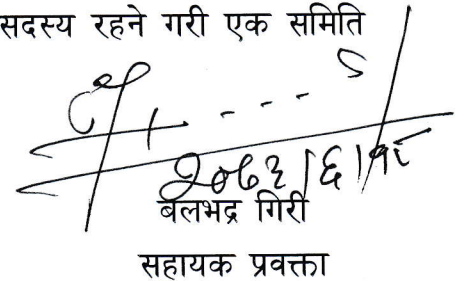 सदस्य रहने गरी एक समिति
बलभद्र गिरी
सहायक प्रवक्ता